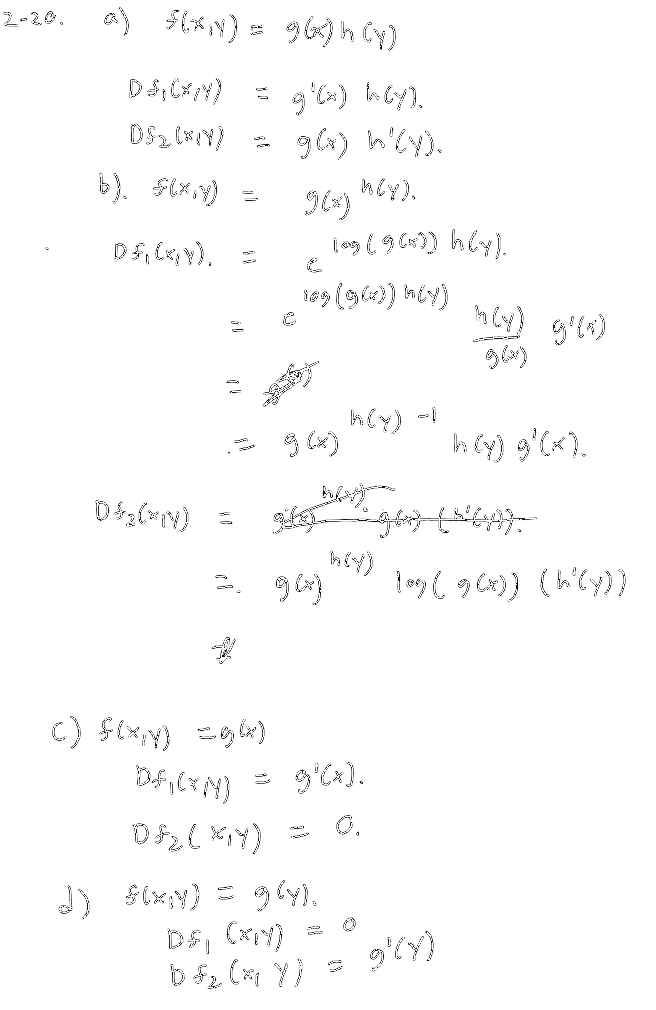 2-20. a) f(x,y) = g(x) h(y)
Df₁(x,y) = g'(x) h(y).
Df₂(x,y) = g(x) h'(y).
b). f(x,y) = g(x)^h(y).
Df₁(x,y). = e^log(g(x)) h(y).
= e^log(g(x)) h(y) h(y)/g(x) g'(x)
=
.= g(x)^h(y)-1 h(y) g'(x).
Df₂(x,y) = g(x)^h(y). g(x) (h'(y)).
=. g(x)^h(y) log(g(x)) (h'(y))
c) f(x,y) = g(x)
Df₁(x,y) = g'(x).
Df₂(x,y) = 0.
d) f(x,y) = g(y).
Df₁(x,y) = 0
Df₂(x,y) = g'(y)